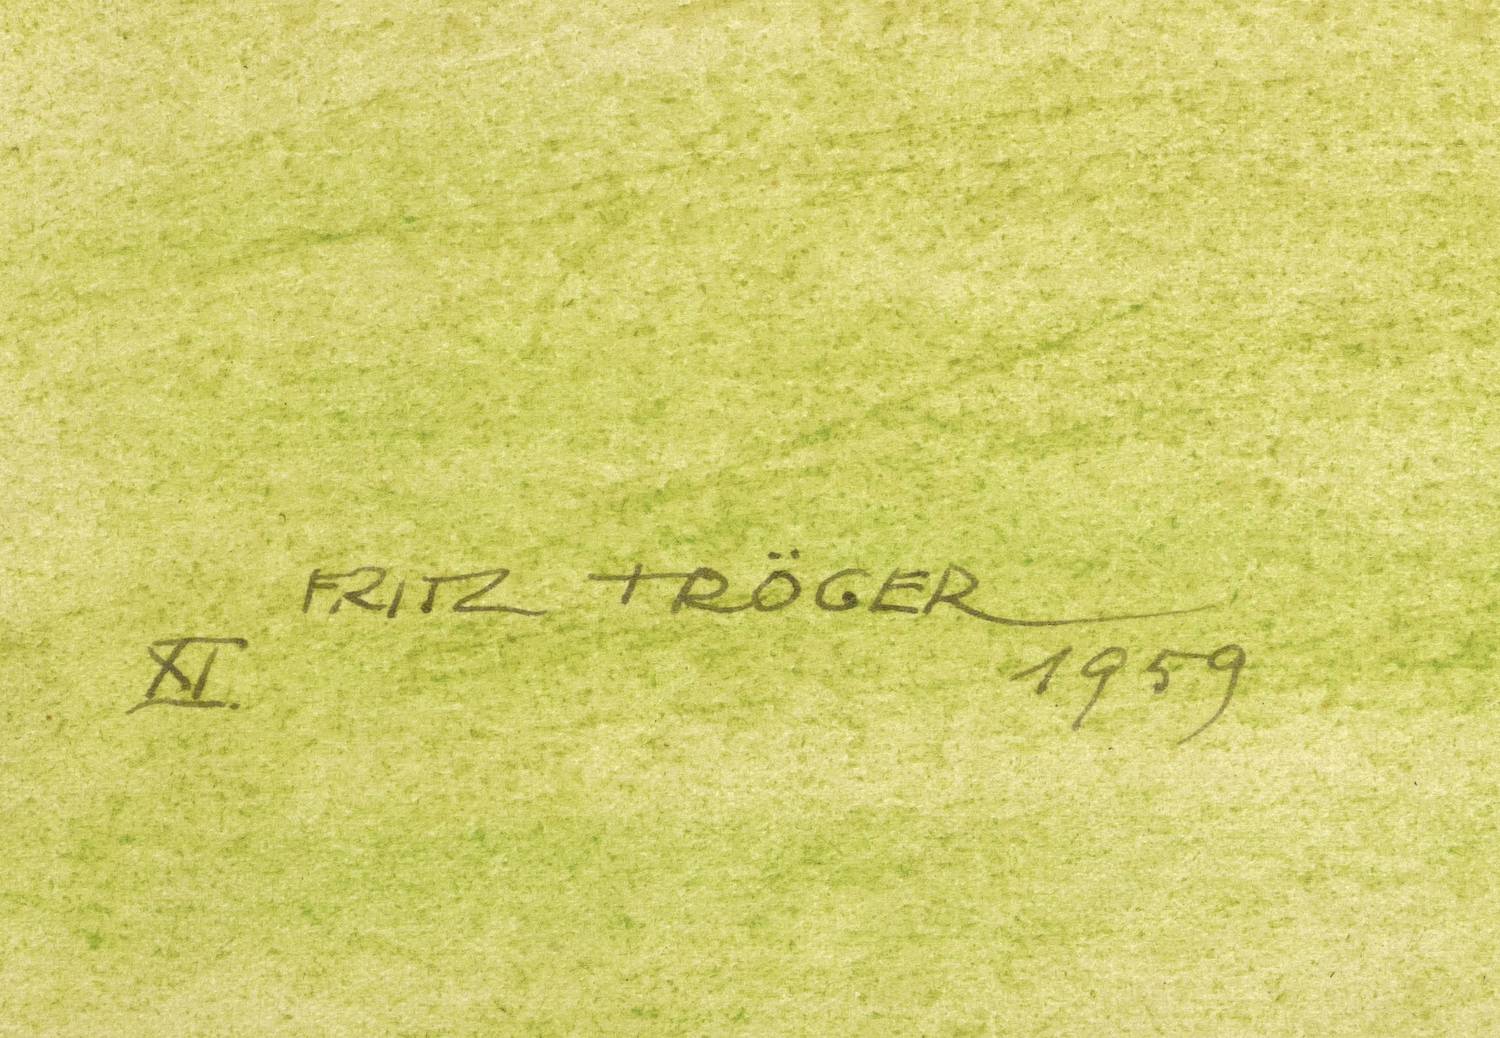 FRITZ TRÖGER
XI. 1959